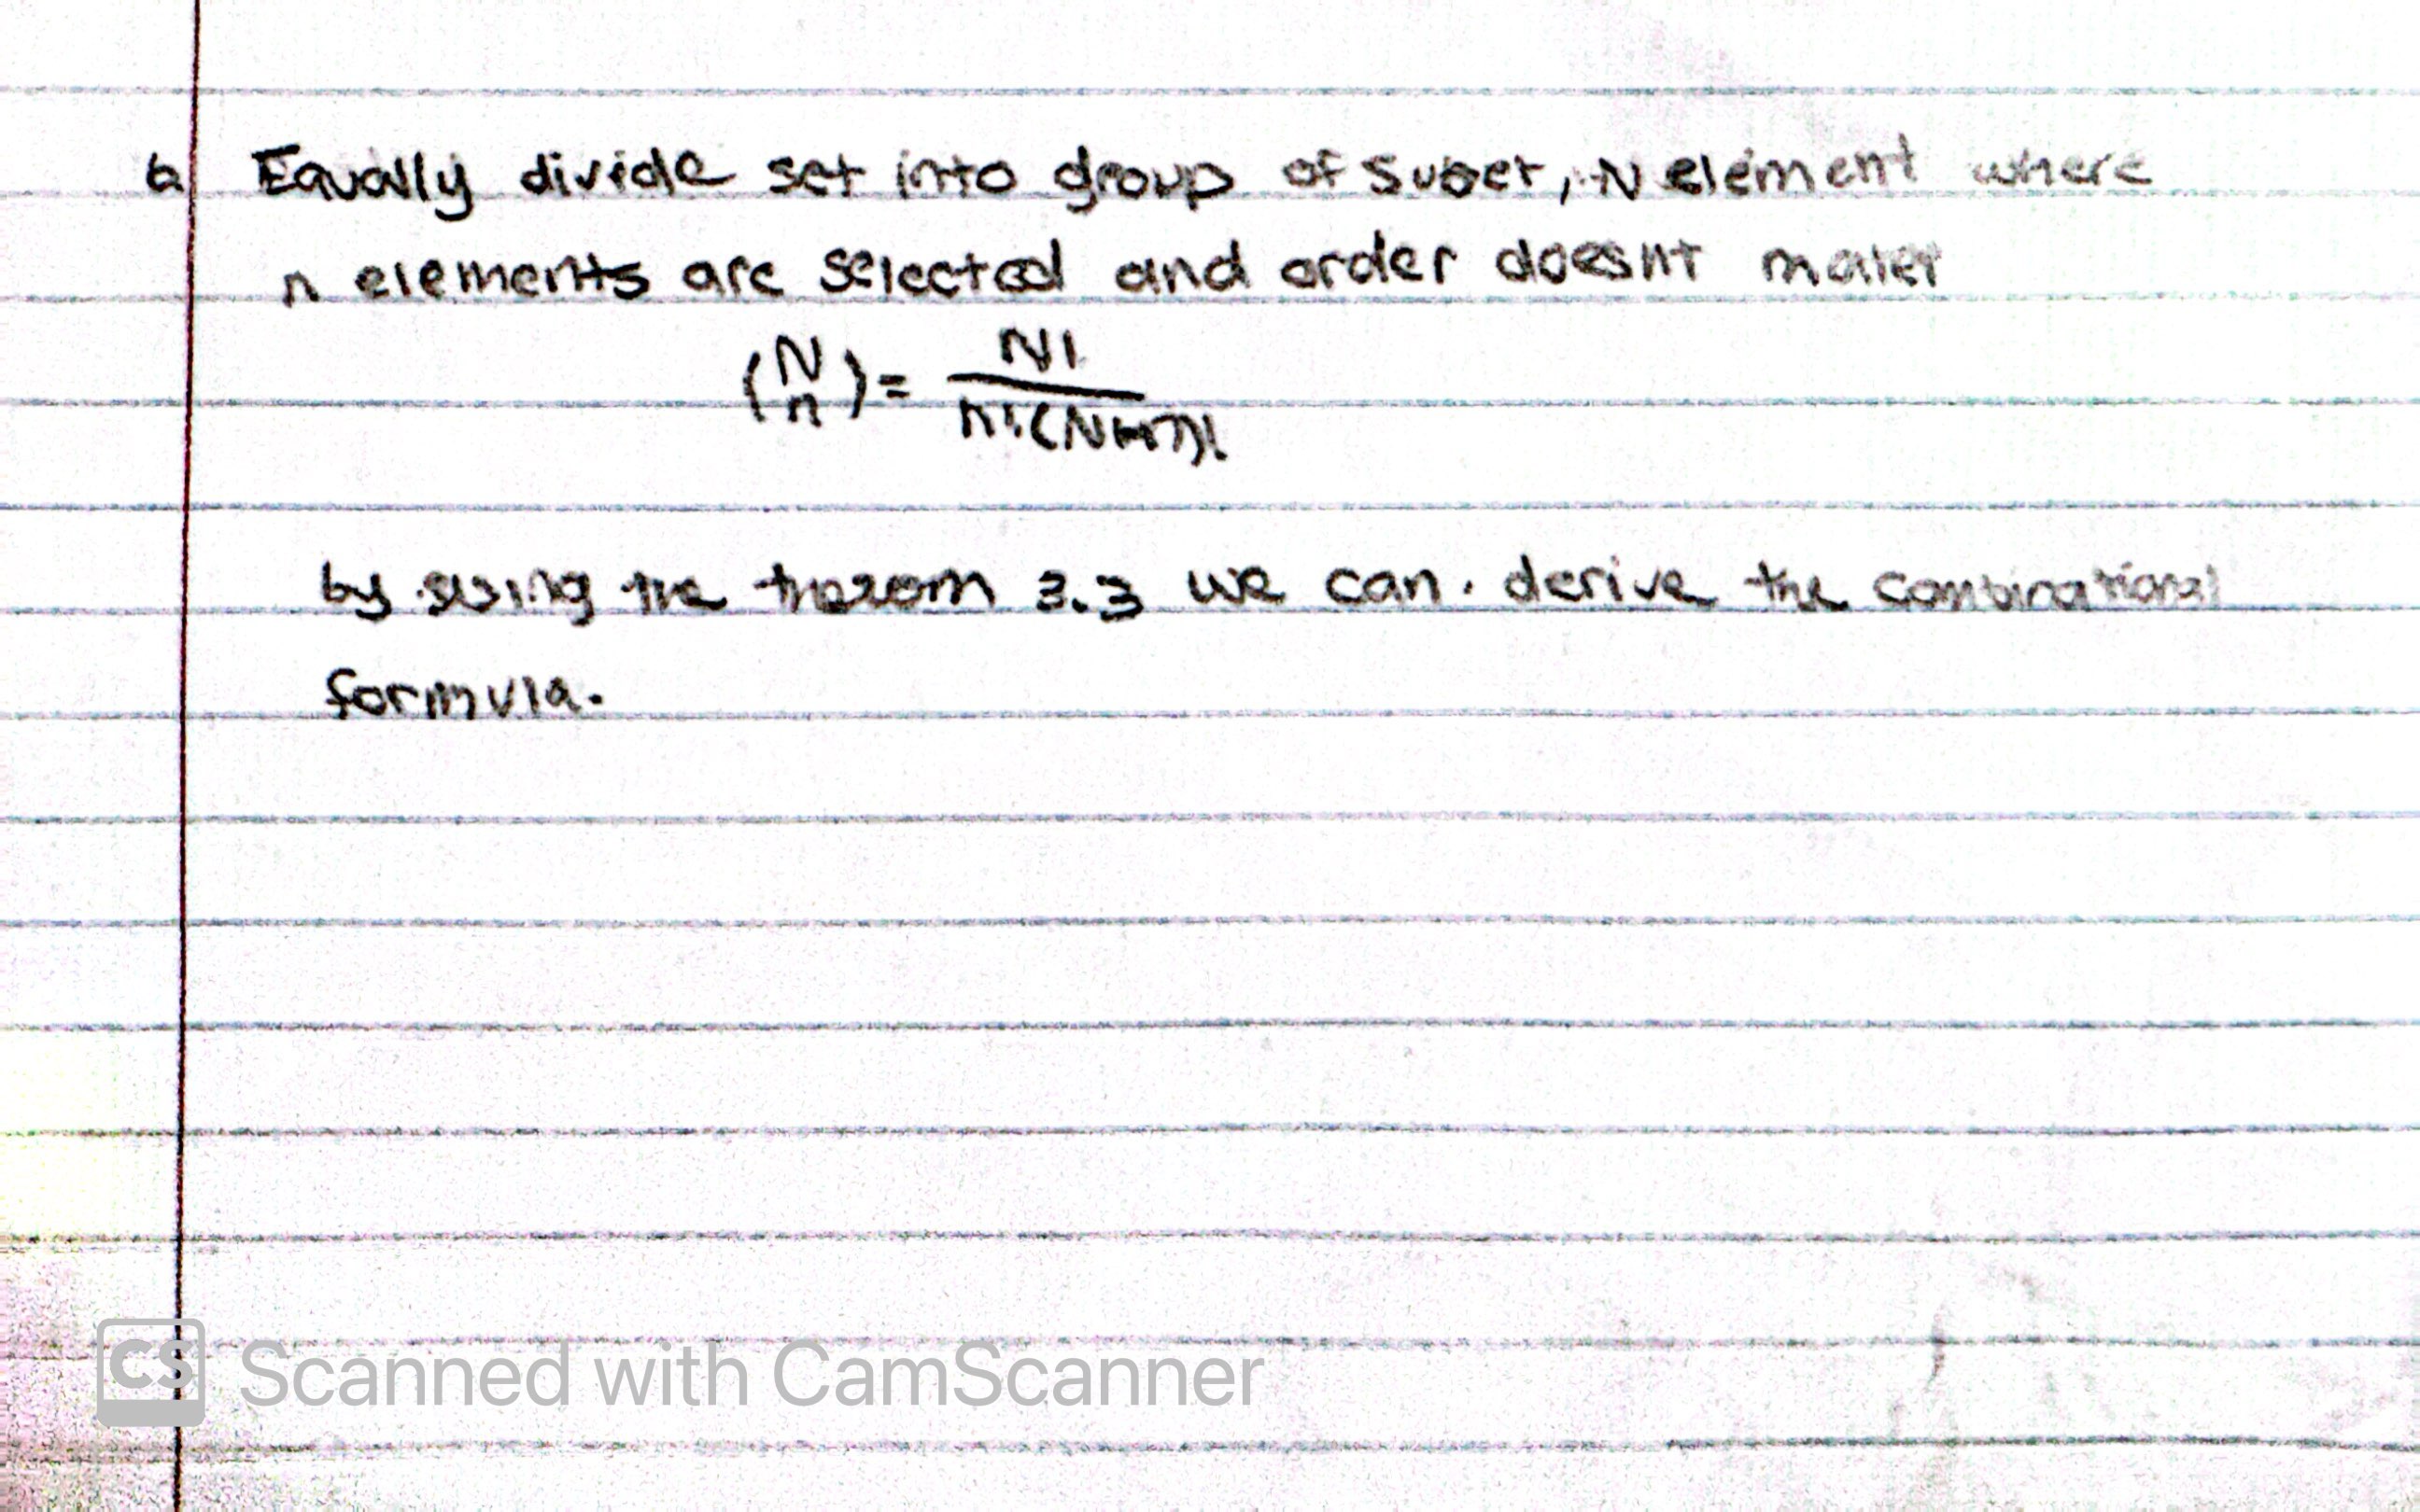 6 Equally divide set into group of Subet, N element where
n elements are selected and order doesnt mater
(N n) = N! / n!(N-n)!
by using the theorem 3.3 we can. derive the combinational
formula.
CS Scanned with CamScanner